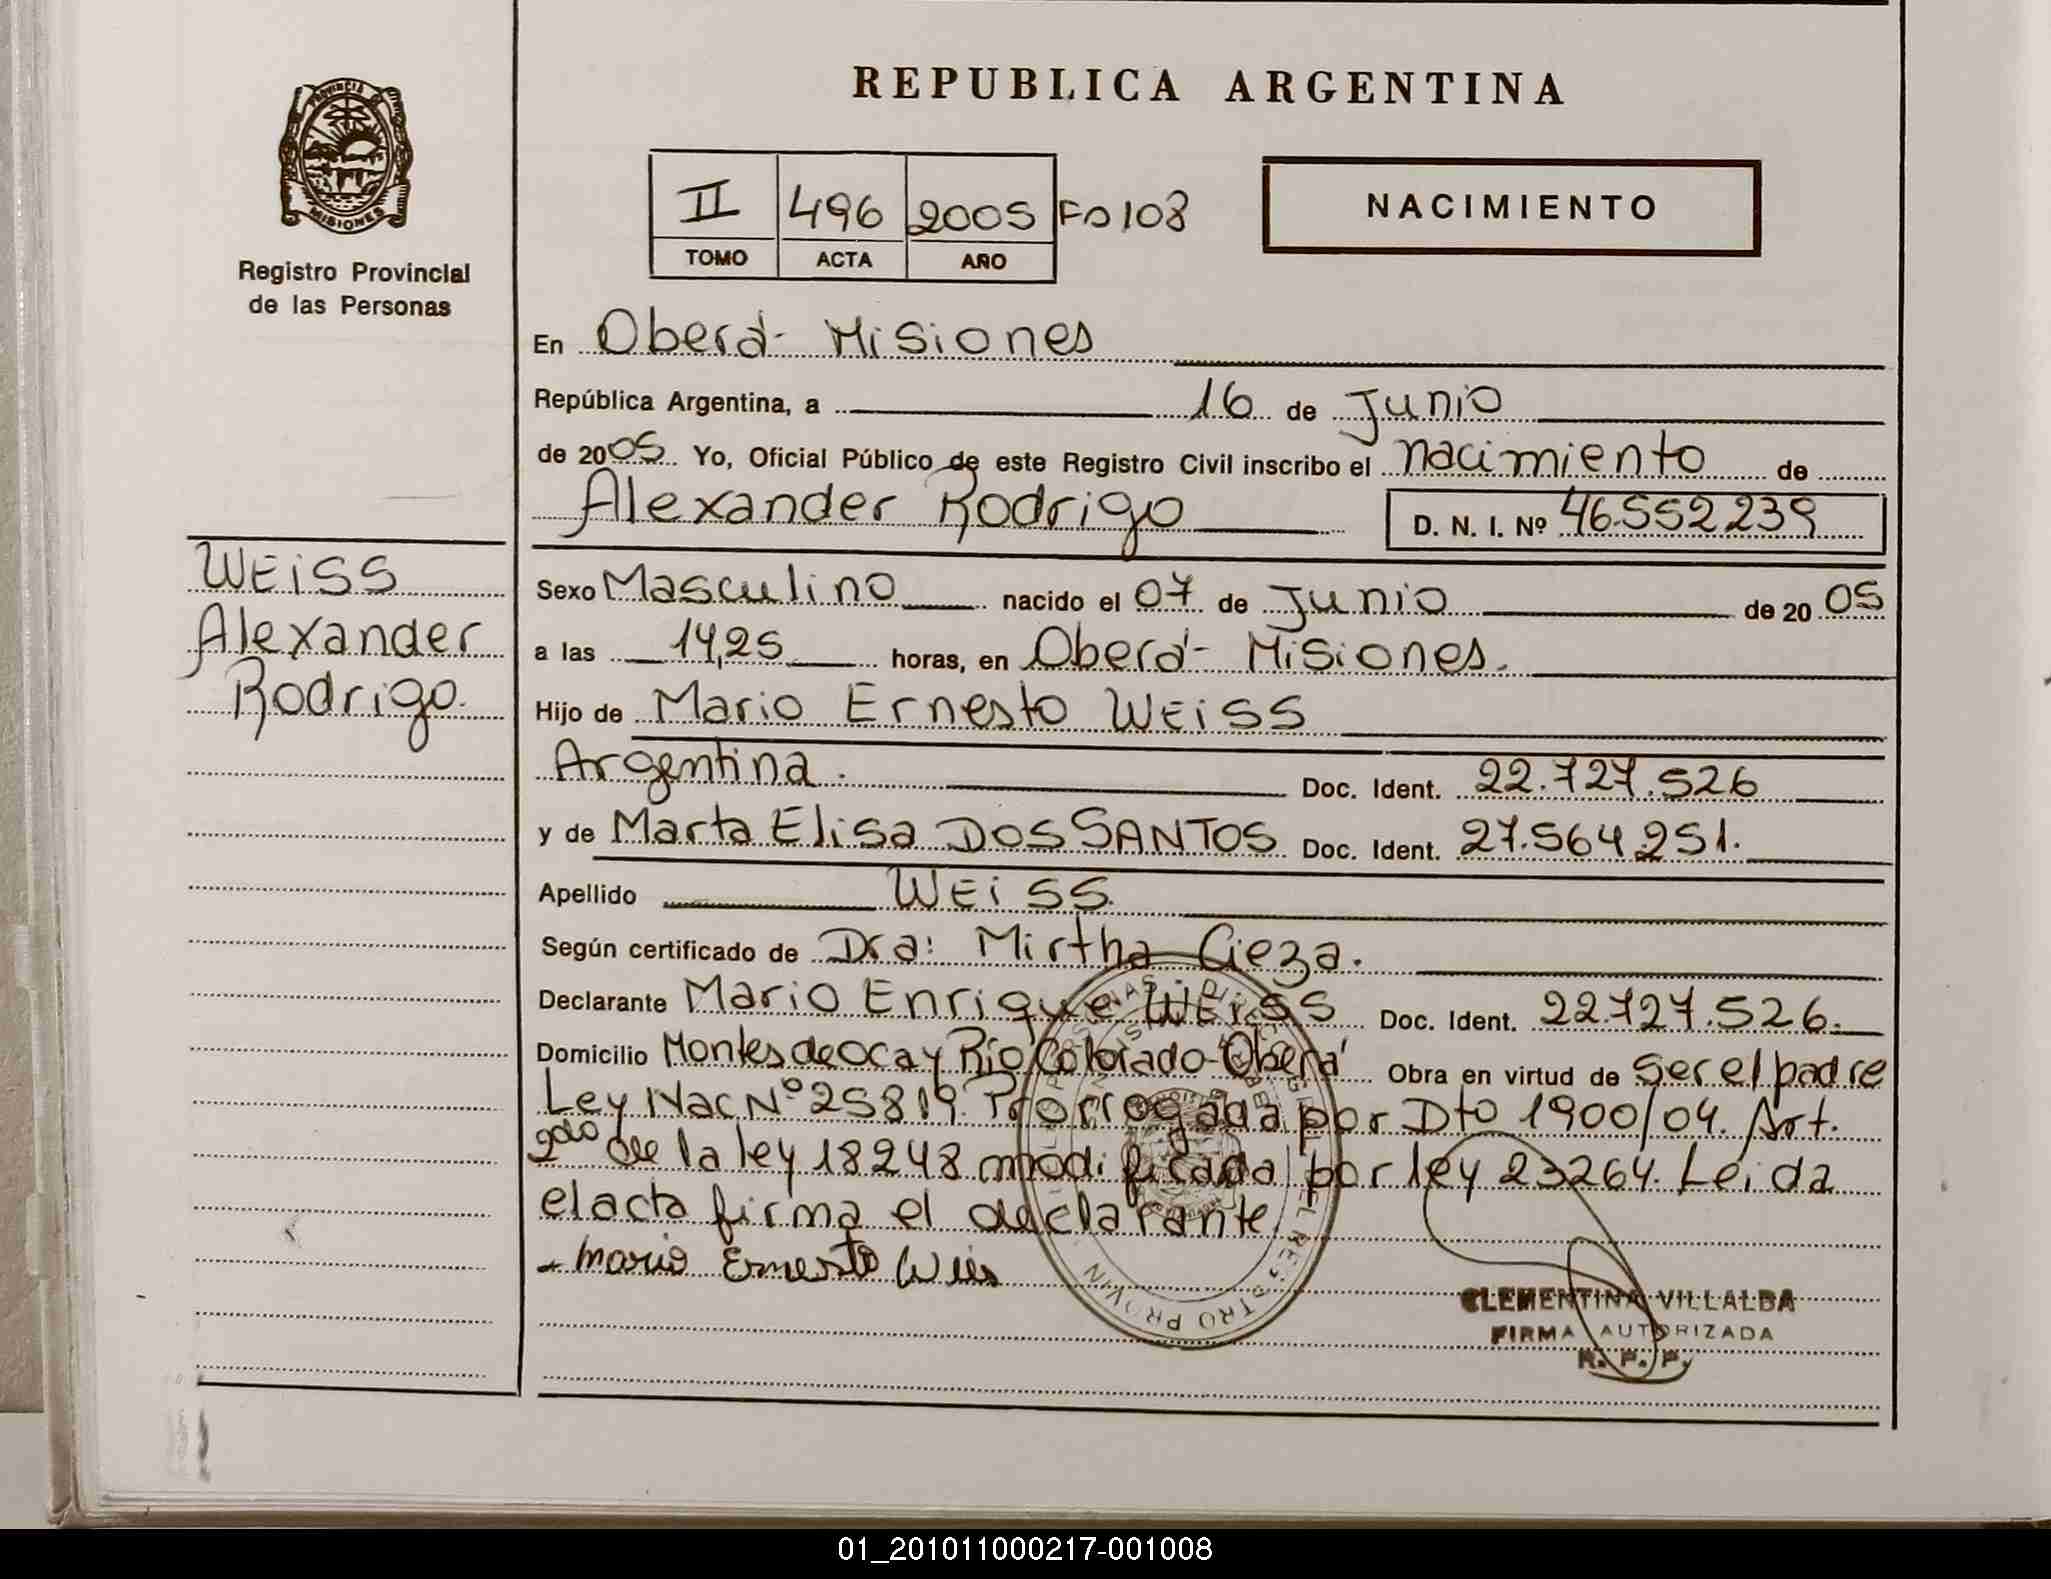 REPUBLICA ARGENTINA
PROVINCIA DE
MISIONES
Registro Provincial
de las Personas
II 496 2005 Fo 108
TOMO ACTA AÑO
NACIMIENTO
En Oberá - Misiones
República Argentina, a 16 de Junio
de 2005 Yo, Oficial Público de este Registro Civil inscribo el nacimiento de
Alexander Rodrigo D. N. I. Nº 46.552.239
WEISS
Alexander
Rodrigo.
Sexo Masculino nacido el 07 de Junio de 2005
a las 14,25 horas, en Oberá - Misiones.
Hijo de Mario Ernesto WEISS
Argentina. Doc. Ident. 22.727.526
y de Marta Elisa DOS SANTOS Doc. Ident. 27.564.251.
Apellido WEISS.
Según certificado de Dra: Mirtha Cieza.
Declarante Mario Enrique WEISS Doc. Ident. 22.727.526.
Domicilio Montes de Oca y Río Colorado - Oberá Obra en virtud de ser el padre
Ley Nac Nº 25819. Prorrogada por Dto 1900/04. Art.
2do de la ley 18248 modificada por ley 23264. Leida
el acta firma el declarante.
- Mario Ernesto Weis
CLEMENTINA VILLALBA
FIRMA AUTORIZADA
R. P. P.
01_201011000217-001008